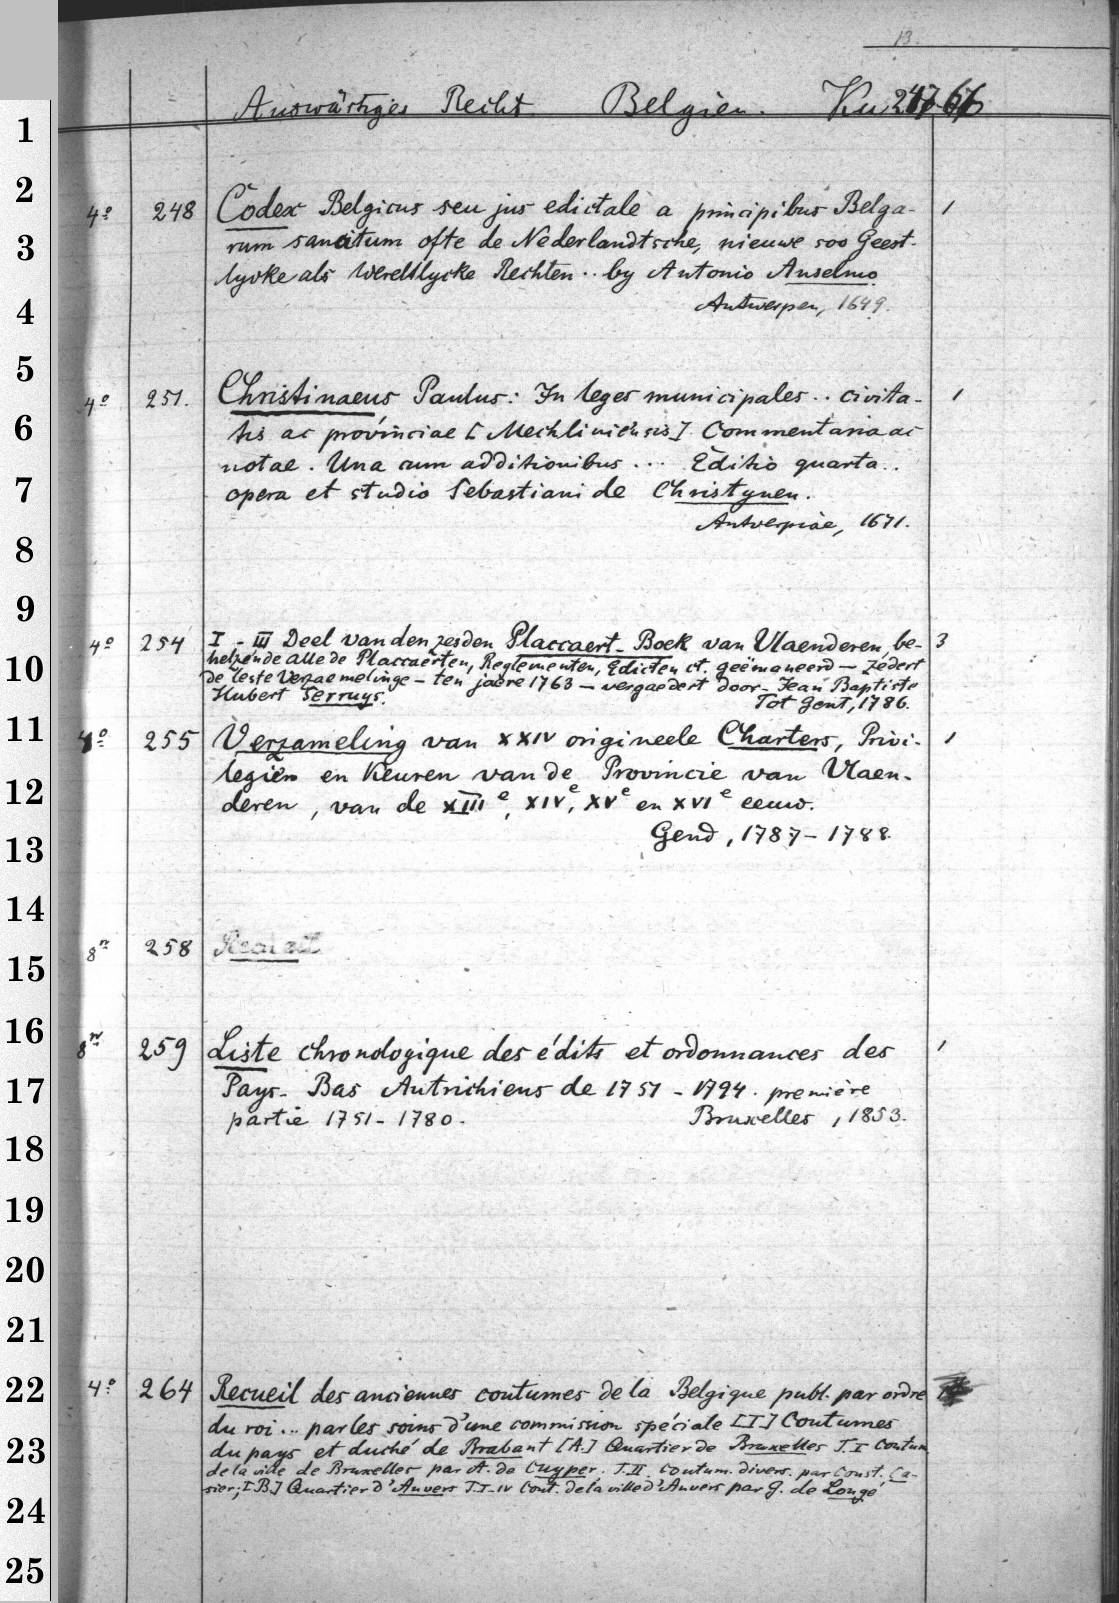 13.
Auswärtiges Recht Belgien. Ku
1
2
4º 248 Codex Belgicus seu jus edictale a principibus Belga- 1
3
rum sancitum ofte de Nederlandtsche, nieuwe soo Geest-
lycke als Wereltlycke Rechten .. by Antonio Anselmo
4
Antwerpen, 1649.
5
4º 251. Christinaeus Paulus: In leges municipales .. civita- 1
6
tis ac provinciae [Mechliniensis] Commentaria ac
notae. Una cum additionibus ... Editio quarta ..
7
opera et studio Sebastiani de Christynen.
Antverpiae, 1671.
8
9
4º 254 I - III Deel van den zesden Placcaert-Boek van Vlaenderen, be- 3
10
helzende alle de Placcaerten, Reglementen, Edicten et. geëmaneerd - zedert
de leste Verzaemelinge - ten jaere 1763 - vergaedert door - Jean Baptiste
Hubert Serruys. Tot Gent, 1786.
11
4º 255 Verzameling van XXIV origineele Charters, Privi- 1
legiën en Keuren van de Provincie van Vlaen-
12
deren, van de XIIIe, XIVe, XVe en XVIe eeuw.
13
Gend, 1787-1788.
14
8º 258 Recueil
15
16
8º 259 Liste chronologique des édits et ordonnances des 1
17
Pays-Bas Autrichiens de 1751 - 1794. première
partie 1751-1780. Bruxelles, 1853.
18
19
20
21
22
4º 264 Recueil des anciennes coutumes de la Belgique publ. par ordre
du roi ... par les soins d'une commission spéciale [I] Coutumes
23
du pays et duché de Brabant [A.] Quartier de Bruxelles T.I Coutum
de la ville de Bruxelles par A. de Cuyper. T.II. coutum. divers. par Const. Ca-
sier; [B.] Quartier d'Anvers T.I-IV Cout. de la ville d'Anvers par G. de Longé
24
25